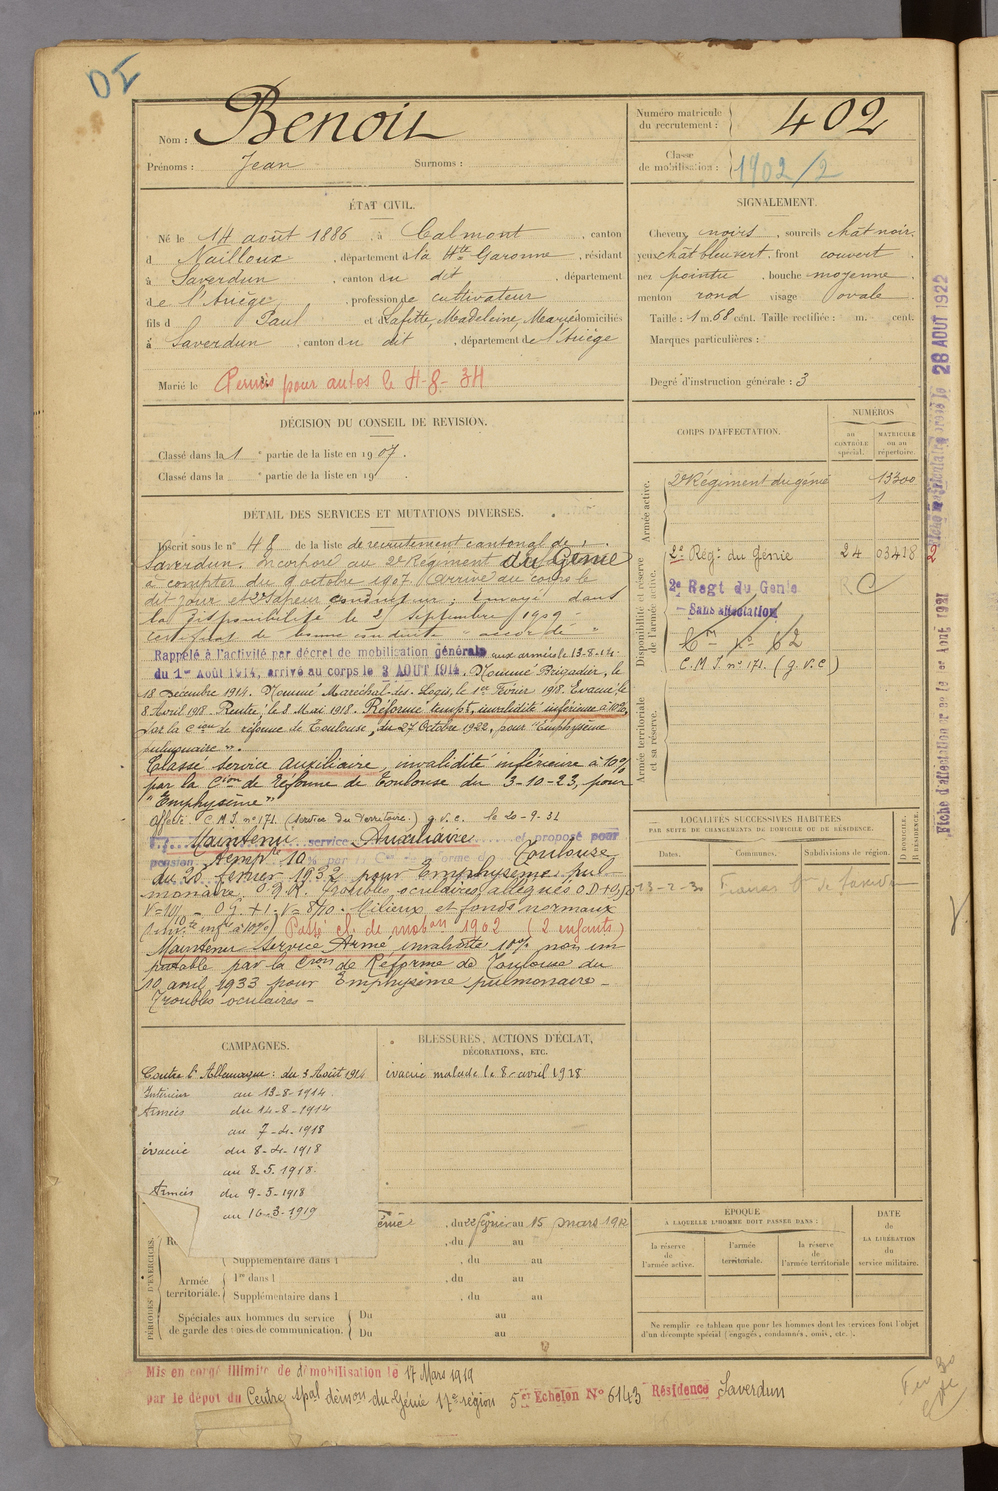 DI
Nom : Benoit
Prénoms : Jean Surnoms :
Numéro matricule du recrutement : 402
Classe de mobilisation : 1902/2
ÉTAT CIVIL.
Né le 14 août 1886, à Calmont, canton
d Nailloux, département d la Hte Garonne, résidant
à Saverdun, canton du dit, département
de l'Ariège, profession de cultivateur
fils d Paul et d Lafitte, Madeleine, Marie domiciliés
à Saverdun, canton du dit, département de l'Ariège
Marié le Permis pour autos le 4-8-34
SIGNALEMENT.
Cheveux noirs, sourcils chât noir.
yeux chât bleu vert, front couvert
nez pointu, bouche moyenne
menton rond visage ovale.
Taille : 1 m. 68 cent. Taille rectifiée : m. cent.
Marques particulières :
Degré d'instruction générale : 3
DÉCISION DU CONSEIL DE REVISION.
Classé dans la 1 e partie de la liste en 1907.
Classé dans la e partie de la liste en 19
CORPS D'AFFECTATION.
NUMÉROS
au CONTRÔLE spécial.
MATRICULE ou au répertoire.
Armée active.
2e Régiment du génie 13300
1
Disponibilité et réserve de l'armée active.
2e Régt du Génie 24 03418 2
2e Regt du Genie
RC
Sans affectation
Cie No 62
C.M.I. n° 171. (g.v.c)
Armée territoriale et sa réserve.
Fiche d'affectation le 1er Aout 1921
28 AOUT 1922
DÉTAIL DES SERVICES ET MUTATIONS DIVERSES.
Inscrit sous le n° 48 de la liste de recrutement cantonal de
Saverdun. Incorporé au 2e Régiment du Génie
à compter du 9 octobre 1907. Arrivé au corps le
dit jour et 2e Sapeur conducteur; Envoyé dans
la disponibilité le 25 Septembre 1909
Certificat de bonne conduite "accordé"
Rappelé à l'activité par décret de mobilisation générale aux armées le 13-8-14.
du 1er Août 1914, arrivé au corps le 3 AOUT 1914. Nommé Brigadier, le
18 Décembre 1914. Nommé Maréchal-des-Logis, le 1er Février 1918. Evacué le
8 Avril 1918. Rentré, le 8 Mai 1918. Réformé tempre, invalidité inférieure à 10%,
par la Cion de réforme de Toulouse, du 27 Octobre 1922, pour "Emphysème
pulmonaire".
Classé Service Auxiliaire, invalidité inférieure à 10%
par la Cion de Réforme de Toulouse du 3-10-23, pour
"Emphysème"
Affecté C.M.I. n° 171. (Service du Territoire.) g.v.c. le 20-9-31
Maintenu service Auxiliaire et proposé pour
pension tempre 10% par la Cion Réforme de Toulouse
du 20 février 1932 pour Emphysème pul-
monaire. Troubles oculaires allégués O.D + 0,50
V = 10/10 - O g. + 1 - V = 8/10 - Milieux et fonds normaux
(inv.té inf.re à 10%) Passé cl. de mobon 1902 (2 enfants)
Maintenu Service Armé invalidité 10% non im
putable par la Cion de Réforme de Toulouse du
10 avril 1933 pour Emphysème pulmonaire -
Troubles oculaires -
LOCALITÉS SUCCESSIVES HABITÉES
PAR SUITE DE CHANGEMENTS DE DOMICILE OU DE RÉSIDENCE.
Dates. Communes. Subdivisions de région. D DOMICILE. R RÉSIDENCE.
13-2-30
CAMPAGNES.
Contre l'Allemagne : du 3 Août 1914
Intérieur au 13-8-1914
Armées du 14-8-1914
au 7-4-1918
évacué du 8-4-1918
au 8-5-1918
Armées du 9-5-1918
au 16-3-1919
BLESSURES, ACTIONS D'ÉCLAT,
DÉCORATIONS, ETC.
évacué malade le 8 avril 1918
PÉRIODES D'EXERCICES.
Génie, du 22 février au 15 mars 1912
, du au
Supplémentaire dans l , du au
Armée territoriale. 1re dans l , du au
Supplémentaire dans l , du au
Spéciales aux hommes du service de garde des voies de communication. Du au
Du au
ÉPOQUE
A LAQUELLE L'HOMME DOIT PASSER DANS :
la réserve de l'armée active. l'armée territoriale. la réserve de l'armée territoriale
DATE DE LA LIBÉRATION du service militaire.
Ne remplir ce tableau que pour les hommes dont les services font l'objet
d'un décompte spécial (engagés, condamnés, omis, etc.).
Mis en congé illimité de démobilisation le 17 Mars 1919
par le dépôt du Centre spal démon du Génie 17e région 5e Echelon No 6143 Résidence Saverdun